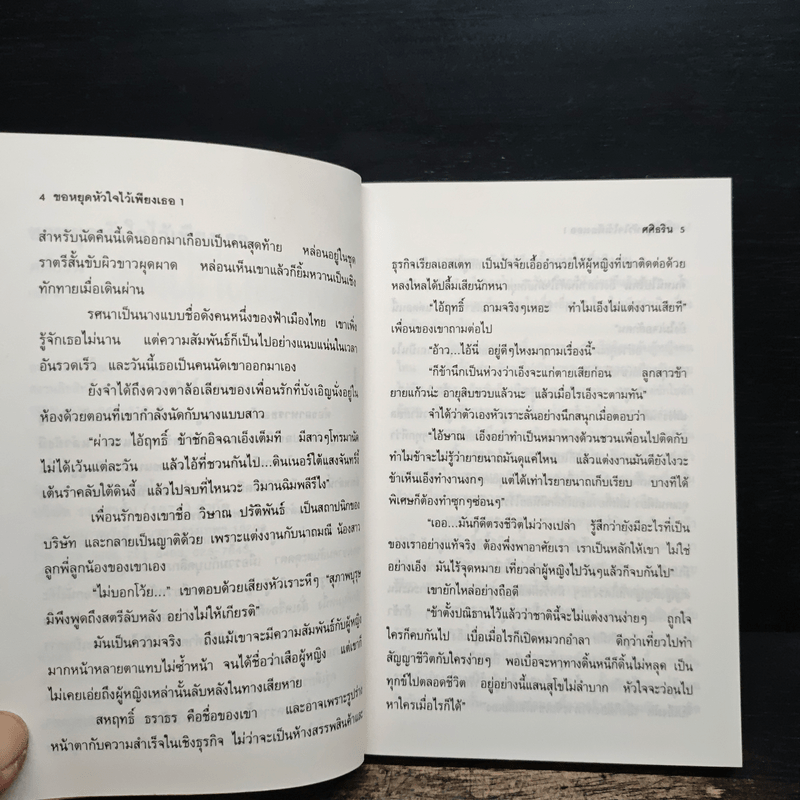 4 ขอหยุดหัวใจไว้เพียงเธอ 1
สำหรับนัดคืนนี้เดินออกมาเกือบเป็นคนสุดท้าย หล่อนอยู่ในชุด
ราตรีสั้นขับผิวขาวผุดผาด หล่อนเห็นเขาแล้วก็ยิ้มหวานเป็นเชิง
ทักทายเมื่อเดินผ่าน
รศนาเป็นนางแบบชื่อดังคนหนึ่งของฟ้าเมืองไทย เขาเพิ่ง
รู้จักเธอไม่นาน แต่ความสัมพันธ์ก็เป็นไปอย่างแนบแน่นในเวลา
อันรวดเร็ว และวันนี้เธอเป็นคนนัดเขาออกมาเอง
ยังจำได้ถึงดวงตาล้อเลียนของเพื่อนรักที่บังเอิญนั่งอยู่ใน
ห้องด้วยตอนที่เขากำลังนัดกับนางแบบสาว
“ผ่าวะ ไอ้ฤทธิ์ ข้าชักอิจฉาเอ็งเต็มที มีสาวๆโทรมานัด
ไม่ได้เว้นแต่ละวัน แล้วไอ้ที่ชวนกันไป...ดินเนอร์ใต้แสงจันทร์งี้
เต้นรำคลับใต้ดินงี้ แล้วไปจบที่ไหนวะ วิมานฉิมพลีรึไง”
เพื่อนรักของเขาชื่อ วิษาณ ปรัติพันธ์ เป็นสถาปนิกของ
บริษัท และกลายเป็นญาติด้วย เพราะแต่งงานกับนาถมณี น้องสาว
ลูกพี่ลูกน้องของเขาเอง
“ไม่บอกโว้ย...” เขาตอบด้วยเสียงหัวเราะหึๆ “สุภาพบุรุษ
มิพึงพูดถึงสตรีลับหลัง อย่างไม่ให้เกียรติ”
มันเป็นความจริง ถึงแม้เขาจะมีความสัมพันธ์กับผู้หญิง
มากหน้าหลายตาแทบไม่ซ้ำหน้า จนได้ชื่อว่าเสือผู้หญิง แต่เขาก็
ไม่เคยเอ่ยถึงผู้หญิงเหล่านั้นลับหลังในทางเสียหาย
สหฤทธิ์ ธราธร คือชื่อของเขา และอาจเพราะรูปร่าง
หน้าตากับความสำเร็จในเชิงธุรกิจ ไม่ว่าจะเป็นห้างสรรพสินค้าและ
ศศิธริน 5
ธุรกิจเรียลเอสเตท เป็นปัจจัยเอื้ออำนวยให้ผู้หญิงที่เขาติดต่อด้วย
หลงใหลได้ปลื้มเสียนักหนา
“ไอ้ฤทธิ์ ถามจริงๆเหอะ ทำไมเอ็งไม่แต่งงานเสียที”
เพื่อนของเขาถามต่อไป
“อ้าว...ไอ้นี่ อยู่ดีๆไหงมาถามเรื่องนี้”
“ก็ข้านึกเป็นห่วงว่าเอ็งจะแก่ตายเสียก่อน ลูกสาวข้า
ยายแก้วน่ะ อายุสิบขวบแล้วนะ แล้วเมื่อไรเอ็งจะตามทัน”
จำได้ว่าตัวเองหัวเราะลั่นอย่างนึกสนุกเมื่อตอบว่า
“ไอ้ษาณ เอ็งอย่าทำเป็นหมาหางด้วนชวนเพื่อนไปติดกับ
ทำไมข้าจะไม่รู้ว่ายายนาถมันดุแค่ไหน แล้วแต่งงานมันดียังไงวะ
ข้าเห็นเอ็งทำงานงกๆ แต่ได้เท่าไรยายนาถเก็บเรียบ บางทีได้
พิเศษก็ต้องทำซุกๆซ่อนๆ”
“เออ...มันก็ดีตรงชีวิตไม่ว่างเปล่า รู้สึกว่ายังมีอะไรที่เป็น
ของเราอย่างแท้จริง ต้องพึ่งพาอาศัยเรา เราเป็นหลักให้เขา ไม่ใช่
อย่างเอ็ง มันไร้จุดหมาย เที่ยวล่าผู้หญิงไปวันๆแล้วก็จบกันไป”
เขายักไหล่อย่างถือดี
“ข้าตั้งปณิธานไว้แล้วว่าชาตินี้จะไม่แต่งงานง่ายๆ ถูกใจ
ใครก็คบกันไป เบื่อเมื่อไรก็เปิดหมวกอำลา ดีกว่าเที่ยวไปทำ
สัญญาชีวิตกับใครง่ายๆ พอเบื่อจะหาทางดิ้นหนีก็ดิ้นไม่หลุด เป็น
ทุกข์ไปตลอดชีวิต อยู่อย่างนี้แสนสุโขไม่ลำบาก หัวใจจะว่อนไป
หาใครเมื่อไรก็ได้”